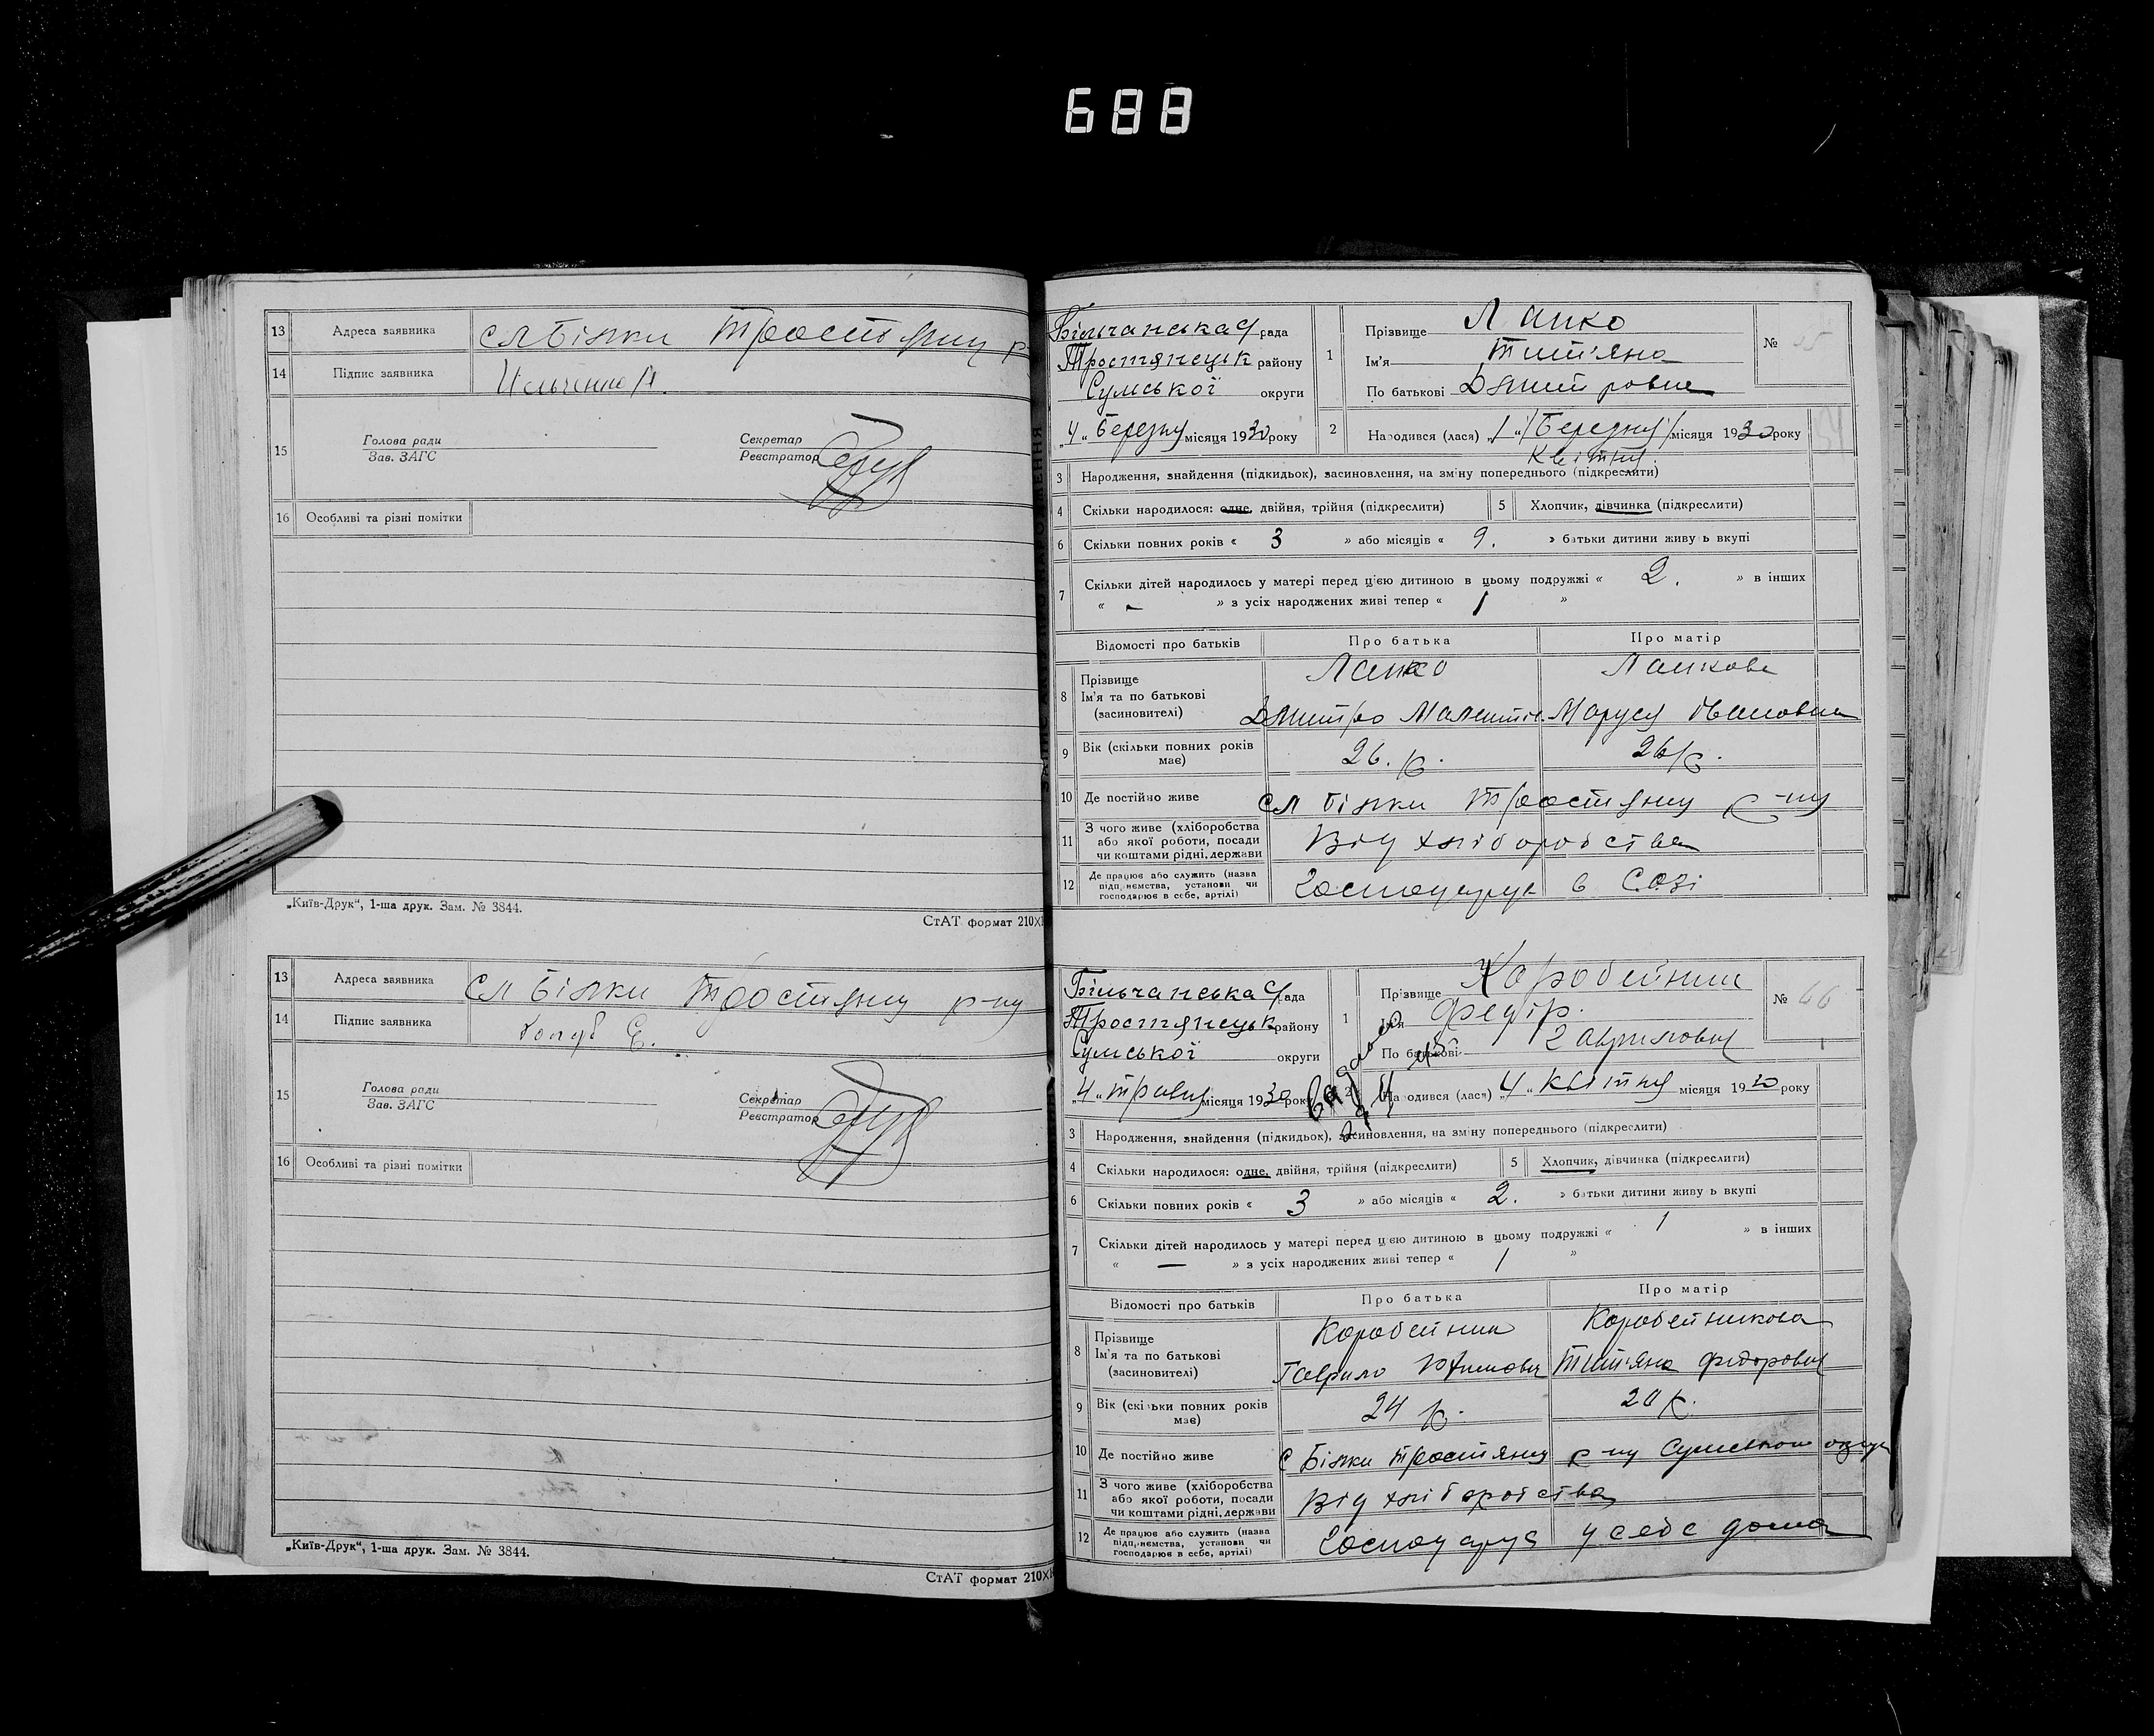 688
13 Адреса заявника сл Білки Тростянец р-
14 Підпис заявника
15 Голова ради
Зав. ЗАГС
Секретар
Реєстратор
16 Особливі та різні помітки
„Київ-Друк“, 1-ша друк. Зам. № 3844.
СтАТ формат 210×1
13 Адреса заявника сл Білки Тростянцу р-ну
14 Підпис заявника Голуб Є.
15 Голова ради
Зав. ЗАГС
Секретар
Реєстратор
16 Особливі та різні помітки
„Київ-Друк“, 1-ша друк. Зам. № 3844.
СтАТ формат 210×1
Більчанська рада
Тростянецьк району
Сумської округи
„4“ Березня місяця 1930 року
1 Прізвище Лапко
Ім'я Тит'яна
По батькові Дмитровна
№
2 Народився (лася) „1“ /Березня/ місяця 1930 року
Квітня
3 Народження, знайдення (підкидьок), засиновлення, на зміну попереднього (підкреслити)
4 Скільки народилося: одне, двійня, трійня (підкреслити) 5 Хлопчик, дівчинка (підкреслити)
6 Скільки повних років « 3 » або місяців « 9. » батьки дитини живуть вкупі
7 Скільки дітей народилось у матері перед цією дитиною в цьому подружжі « 2. » в інших
« - » з усіх народжених живі тепер « 1 »
Відомості про батьків Про батька Про матір
8 Прізвище Лапко Лапкова
Ім'я та по батькові
(засиновителі) Дмитро Маруся Івановна
9 Вік (скільки повних років має) 26. р. 26 р.
10 Де постійно живе сл Білки Тростянцу р-ну
11 З чого живе (хліборобства або якої роботи, посади чи коштами рідні, держави Від хліборобства
12 Де працює або служить (назва підприємства, установи чи господарює в себе, артілі) Господарує в СОЗі
Більчанська рада
Тростянецьк району
Сумської округи
„4“ травня місяця 1930 року
1 Прізвище Коробейник
Ім'я Федір.
По батькові Гаврилович
№ 66
2 Народився (лася) „4“ квітня місяця 1930 року
3 Народження, знайдення (підкидьок), засиновлення, на зміну попереднього (підкреслити)
4 Скільки народилося: одне, двійня, трійня (підкреслити) 5 Хлопчик, дівчинка (підкреслити)
6 Скільки повних років « 3 » або місяців « 2. » батьки дитини живуть вкупі
7 Скільки дітей народилось у матері перед цією дитиною в цьому подружжі « 1 » в інших
« — » з усіх народжених живі тепер « 1 »
Відомості про батьків Про батька Про матір
8 Прізвище Коробейник Коробейникова
Ім'я та по батькові
(засиновителі) Гаврило Юхимович Тит'яна Федоровна
9 Вік (скільки повних років має) 24 р. 20 р.
10 Де постійно живе с Білки Тростянцу р-ну Сумської округ
11 З чого живе (хліборобства або якої роботи, посади чи коштами рідні, держави Від хліборобства
12 Де працює або служить (назва підприємства, установи чи господарює в себе, артілі) Господарує у себе дома